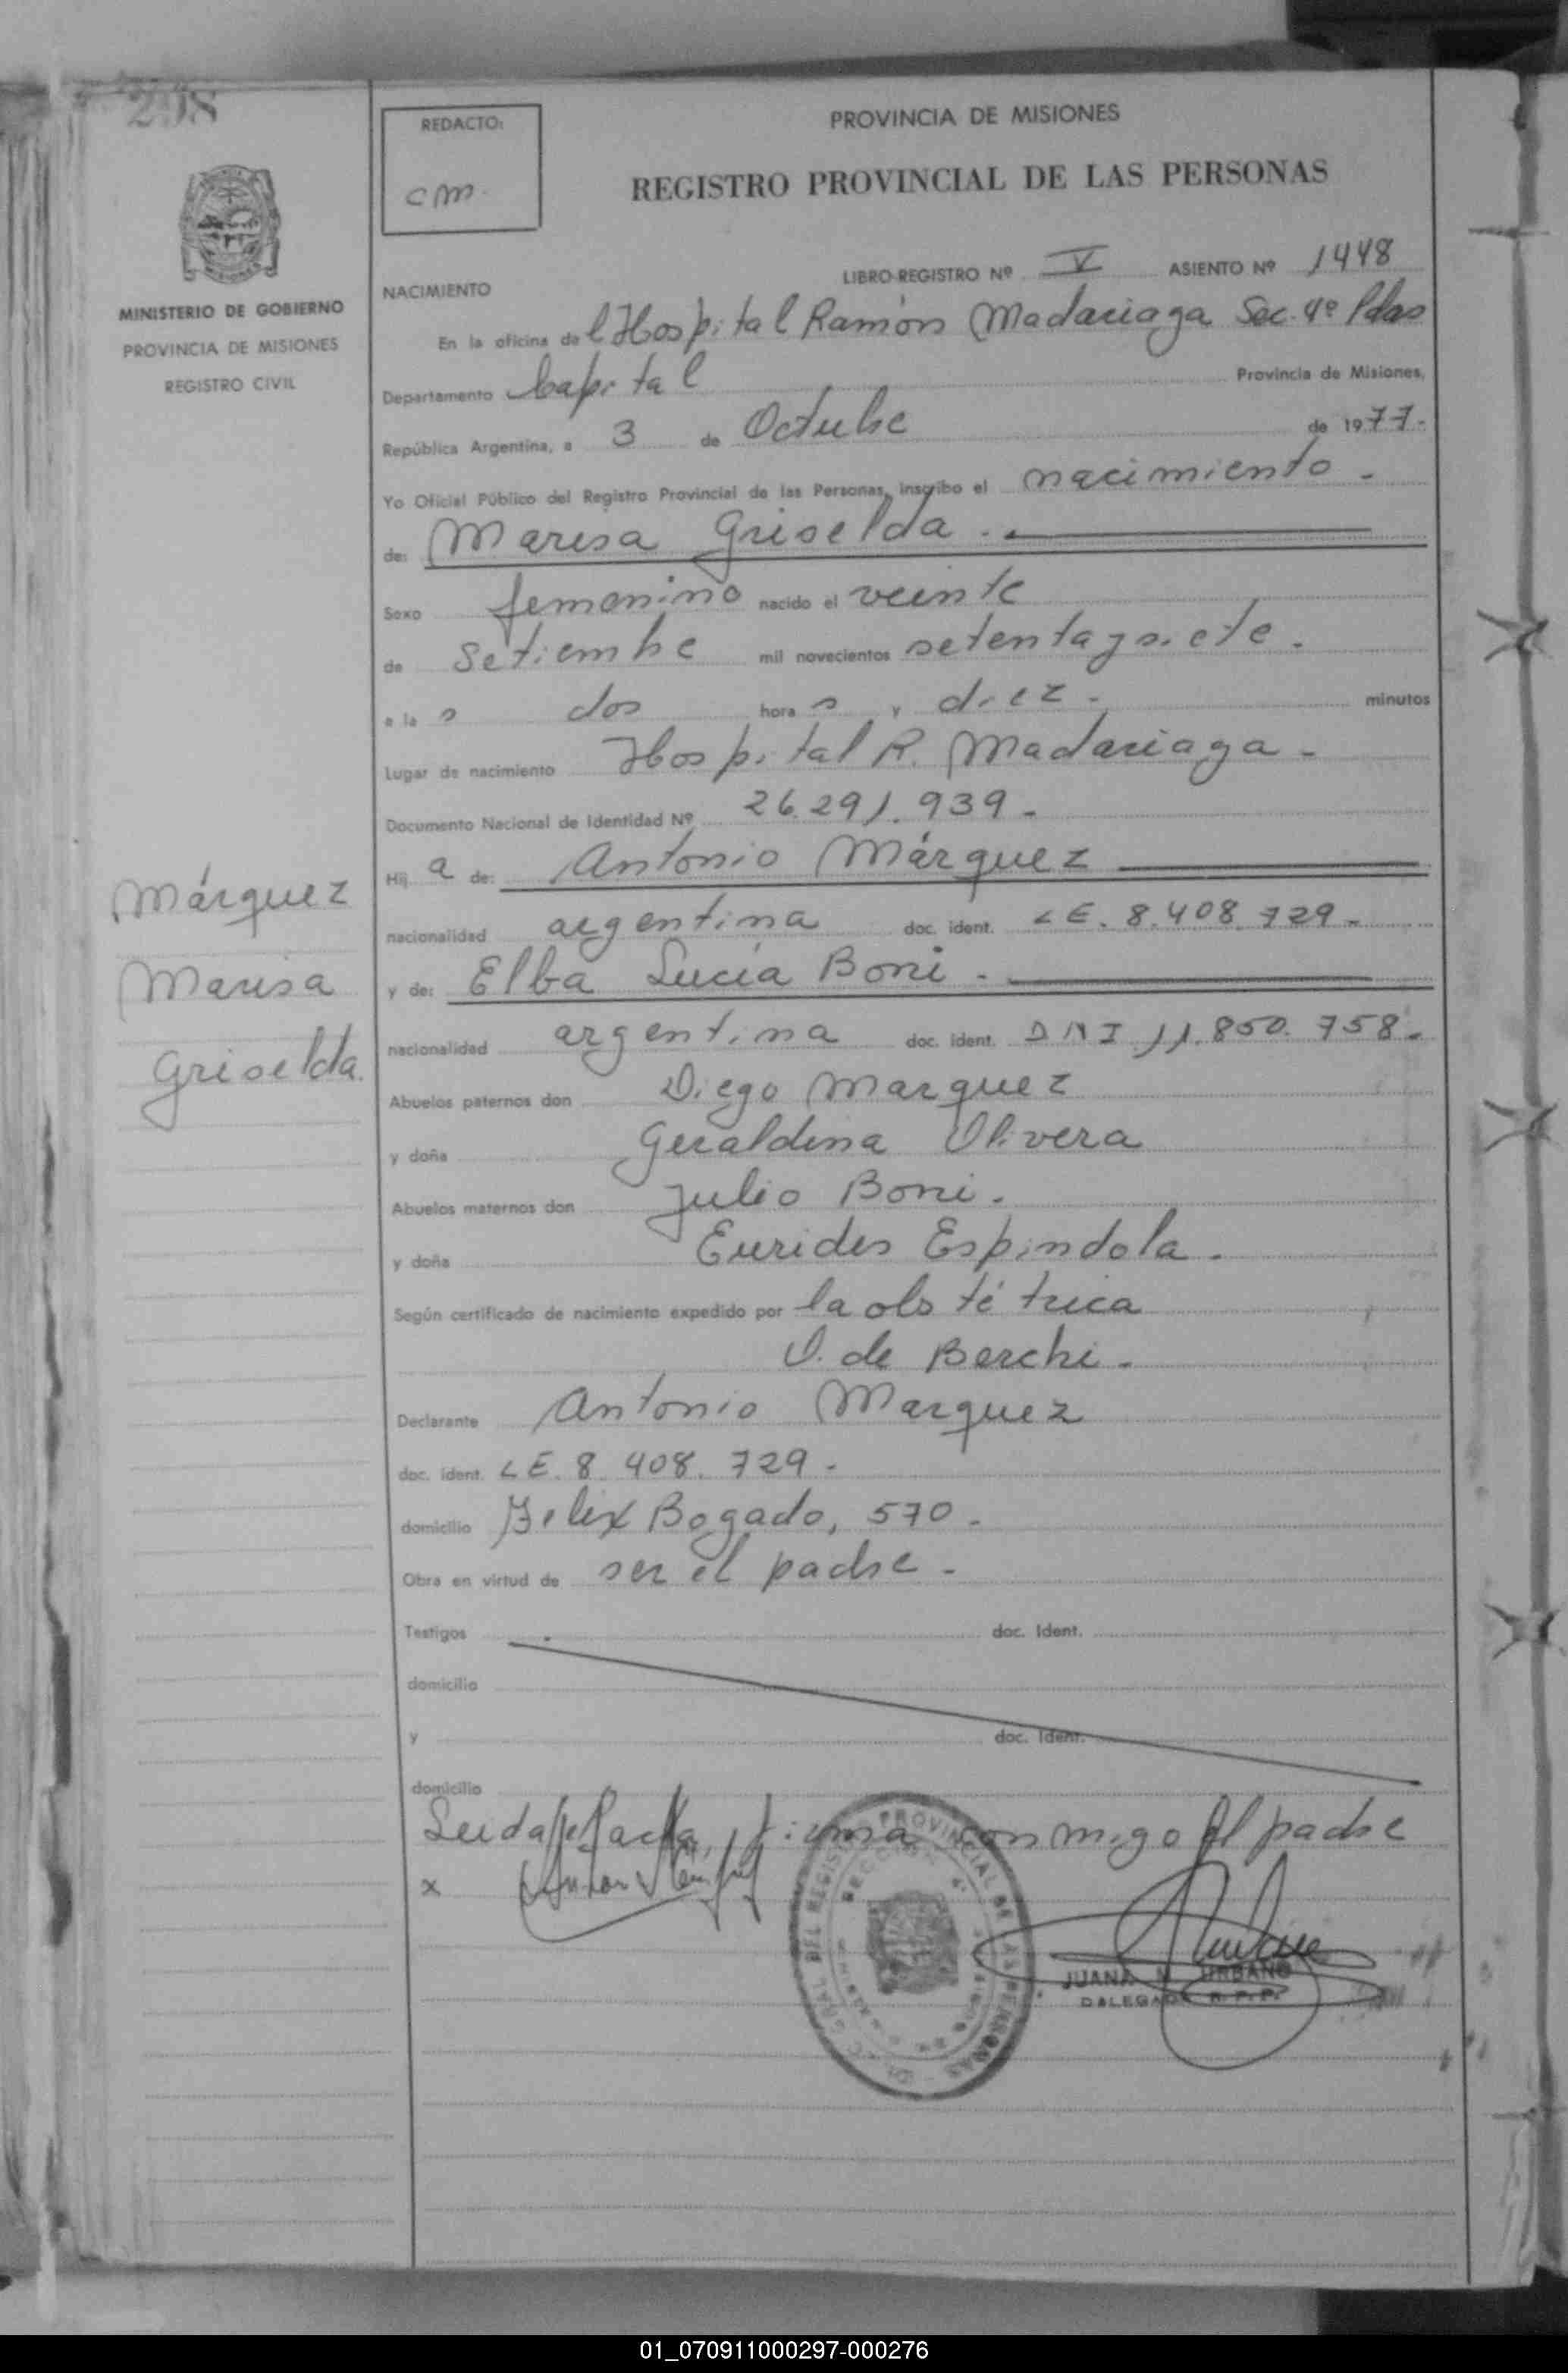 208
REDACTO:
cm.
PROVINCIA DE MISIONES
REGISTRO PROVINCIAL DE LAS PERSONAS
MINISTERIO DE GOBIERNO
PROVINCIA DE MISIONES
REGISTRO CIVIL
LIBRO-REGISTRO Nº V ASIENTO Nº 1448
NACIMIENTO
En la oficina de l Hospital Ramón Madariaga Sec. 4º Pdas
Departamento Capital Provincia de Misiones,
República Argentina, a 3 de Octubre de 1977.-
Yo Oficial Público del Registro Provincial de las Personas, inscribo el nacimiento -
de: Marisa Griselda.
Sexo femenino nacido el veinte
de Setiembre mil novecientos setenta y siete.
a la s dos hora s y diez. minutos
Lugar de nacimiento Hospital R. Madariaga -
Documento Nacional de Identidad Nº 26.291.939 -
Hij a de: Antonio Márquez
nacionalidad argentina doc. ident. LE. 8.408.729 -
y de: Elba Lucía Boni.
nacionalidad argentina doc. ident. DNI 11.850.758 -
Abuelos paternos don Diego Marquez
y doña Geraldina Olivera
Abuelos maternos don Julio Boni.
y doña Eurides Espindola.
Según certificado de nacimiento expedido por la obstétrica
O. de Berchi -
Declarante Antonio Marquez
doc. ident. LE. 8.408.729 -
domicilio Felix Bogado, 570 -
Obra en virtud de ser el padre -
Testigos doc. Ident.
domicilio
y doc. Ident.
domicilio
Leida el acta, firma conmigo el padre
x
JUANA N. URBANO
DELEGADA R.P.P.
Márquez
Marisa
Griselda.
01_070911000297-000276